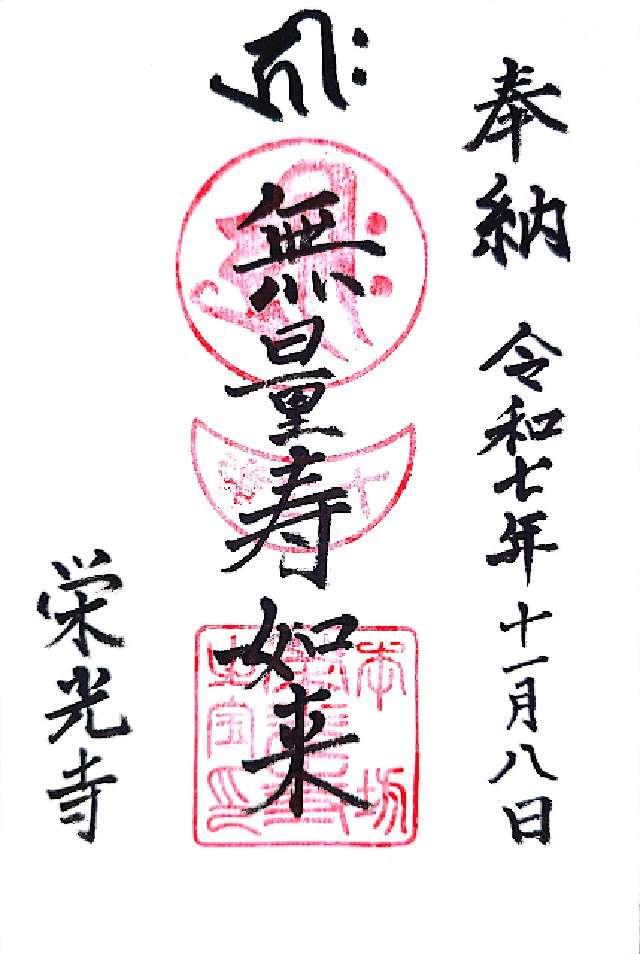 奉納 令和七年十一月八日
無量寿如来
栄光寺
本坊